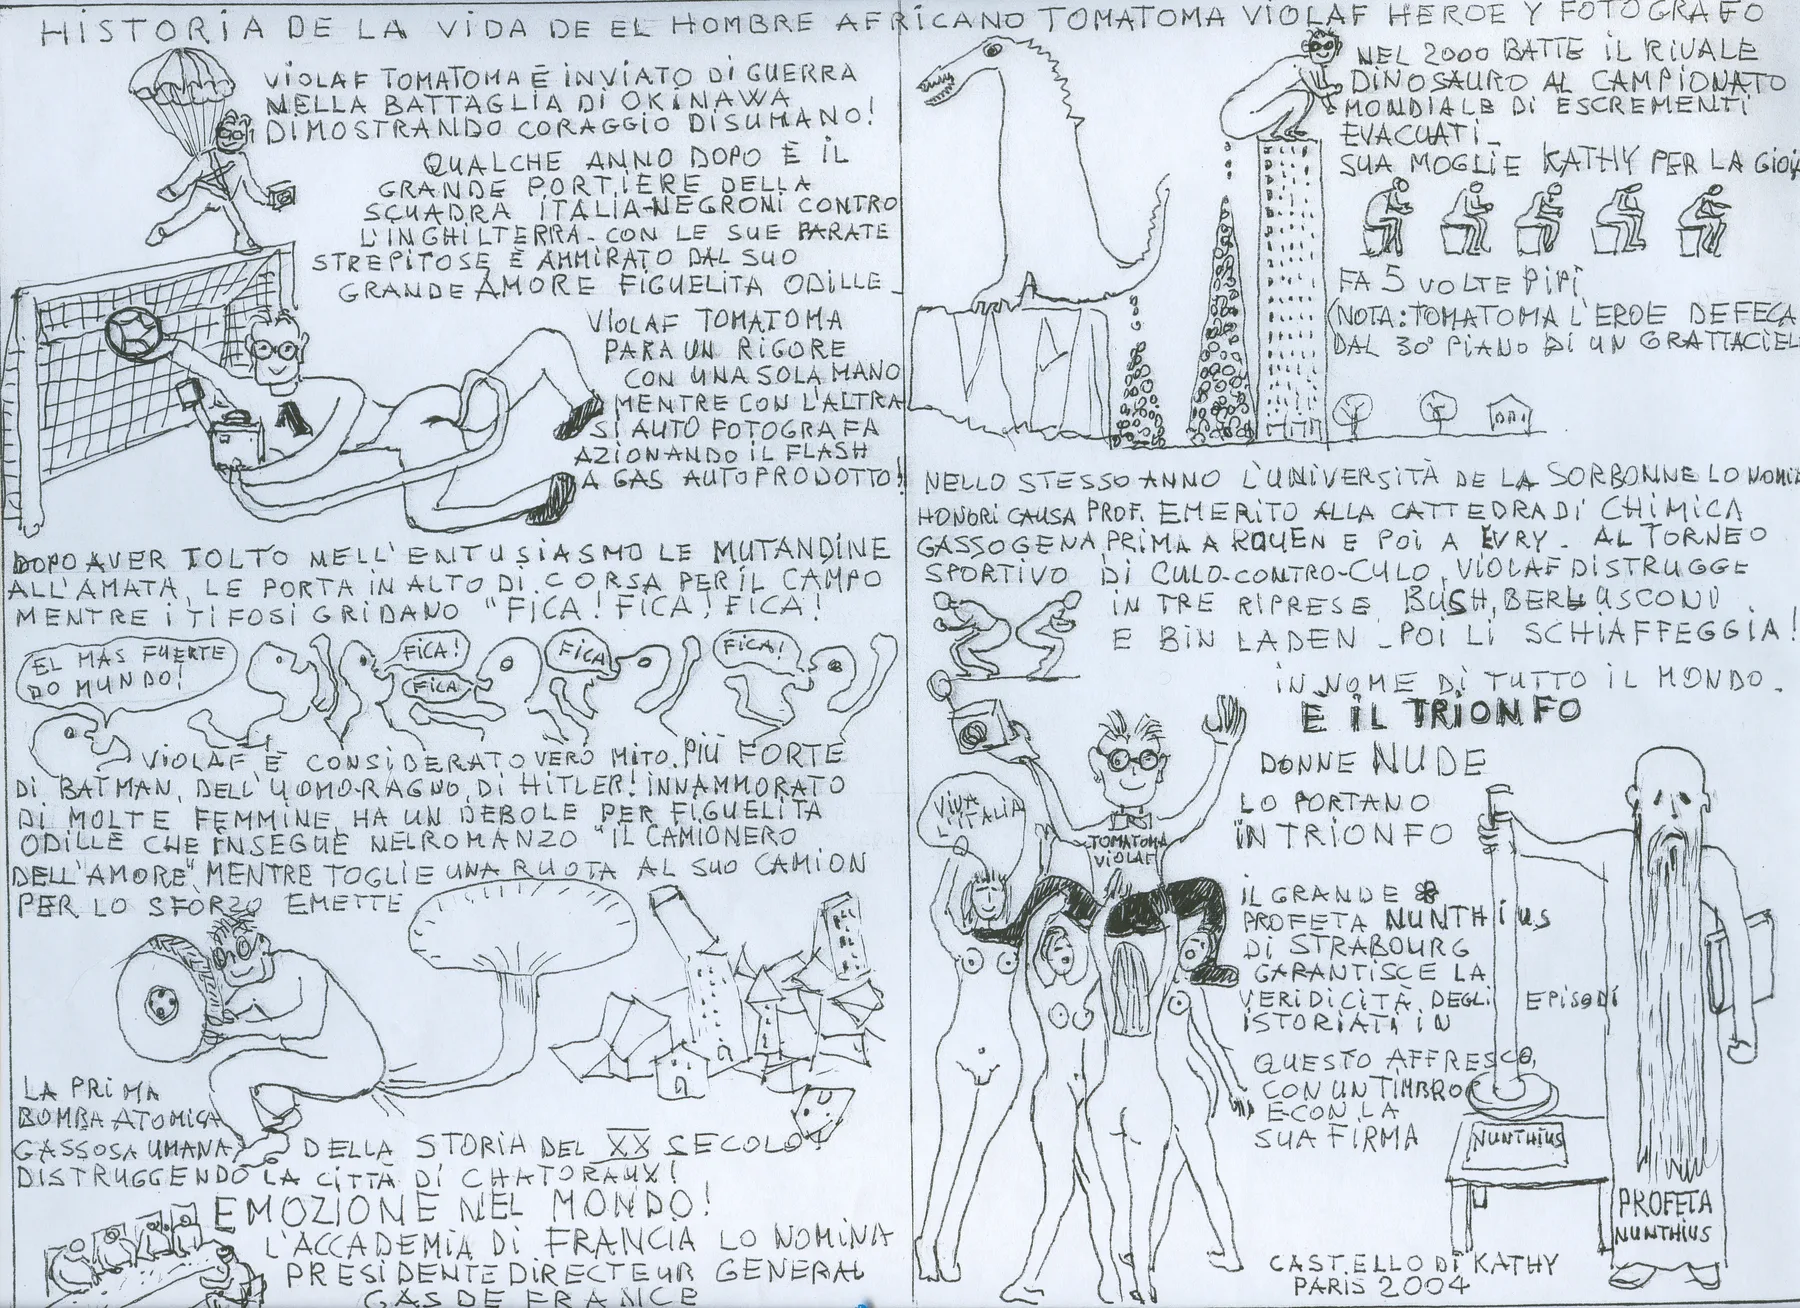 HISTORIA DE LA VIDA DE EL HOMBRE AFRICANO TOMATOMA VIOLAF HEROE Y FOTOGRAFO
VIOLAF TOMATOMA È INVIATO DI GUERRA
NELLA BATTAGLIA DI OKINAWA
DIMOSTRANDO CORAGGIO DISUMANO!
QUALCHE ANNO DOPO È IL
GRANDE PORTIERE DELLA
SQUADRA ITALIA-NEGRONI CONTRO
L'INGHILTERRA - CON LE SUE PARATE
STREPITOSE È AMMIRATO DAL SUO
GRANDE AMORE FIGUELITA ODILLE -
VIOLAF TOMATOMA
PARA UN RIGORE
CON UNA SOLA MANO
MENTRE CON L'ALTRA
SI AUTO FOTOGRAFA
AZIONANDO IL FLASH
A GAS AUTOPRODOTTO!
DOPO AVER TOLTO NELL'ENTUSIASMO LE MUTANDINE
ALL'AMATA, LE PORTA IN ALTO DI CORSA PER IL CAMPO
MENTRE I TIFOSI GRIDANO "FICA! FICA! FICA!
EL MAS FUERTE
DO MUNDO!
FICA!
FICA
FICA
FICA!
VIOLAF È CONSIDERATO VERO MITO. PIÙ FORTE
DI BATMAN, DELL'UOMO-RAGNO, DI HITLER! INNAMMORATO
DI MOLTE FEMMINE HA UN DEBOLE PER FIGUELITA
ODILLE CHE INSEGUE NEL ROMANZO "IL CAMIONERO
DELL'AMORE" MENTRE TOGLIE UNA RUOTA AL SUO CAMION
PER LO SFORZO EMETTE
LA PRIMA
BOMBA ATOMICA
GASSOSA UMANA DELLA STORIA DEL XX SECOLO!
DISTRUGGENDO LA CITTÀ DI CHATORAUX!
EMOZIONE NEL MONDO!
L'ACCADEMIA DI FRANCIA LO NOMINA
PRESIDENTE DIRECTEUR GENERAL
GAS DE FRANCE
NEL 2000 BATTE IL RIVALE
DINOSAURO AL CAMPIONATO
MONDIALE DI ESCREMENTI
EVACUATI -
SUA MOGLIE KATHY PER LA GIOIA
FA 5 VOLTE PIPÌ
(NOTA: TOMATOMA L'EROE DEFECA
DAL 30° PIANO DI UN GRATTACIEL
NELLO STESSO ANNO L'UNIVERSITÀ DE LA SORBONNE LO NOMINA
HONORI CAUSA PROF. EMERITO ALLA CATTEDRA DI CHIMICA
GASSOGENA PRIMA A ROUEN E POI A EVRY - AL TORNEO
SPORTIVO DI CULO-CONTRO-CULO, VIOLAF DISTRUGGE
IN TRE RIPRESE BUSH, BERLUSCONI
E BIN LADEN - POI LI SCHIAFFEGGIA!
IN NOME DI TUTTO IL MONDO.
È IL TRIONFO
DONNE NUDE
LO PORTANO
IN TRIONFO
VIVA
L'ITALIA
TOMATOMA
VIOLAF
IL GRANDE
PROFETA NUNTHIUS
DI STRABOURG
GARANTISCE LA
VERIDICITÀ DEGLI EPISODI
ISTORIATI IN
QUESTO AFFRESCO,
CON UN TIMBRO
E CON LA
SUA FIRMA
NUNTHIUS
PROFETA
NUNTHIUS
CASTELLO DI KATHY
PARIS 2004